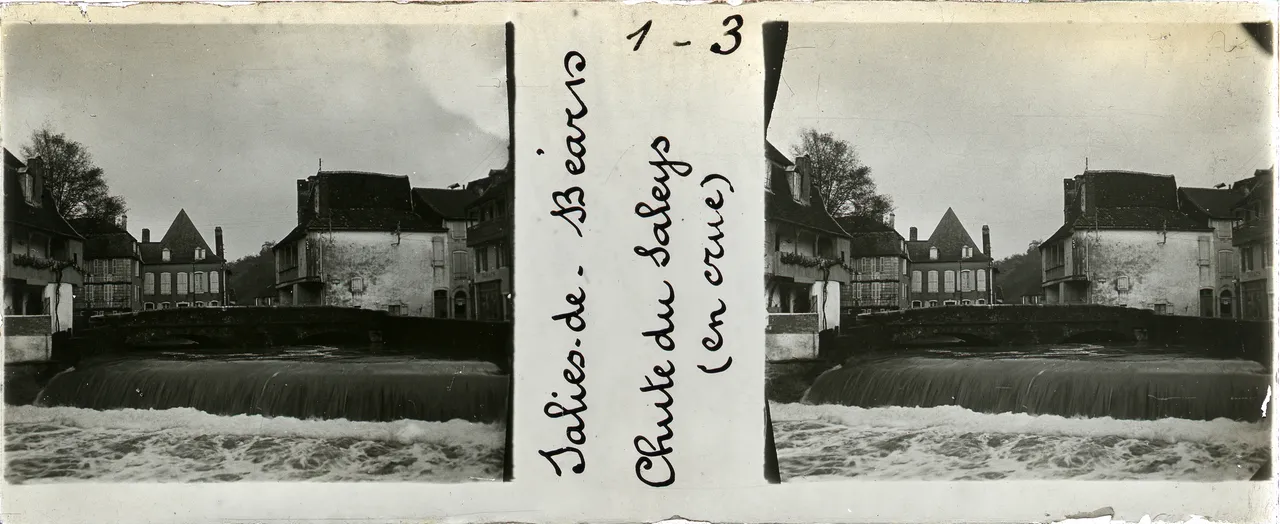 1-3
Salies-de-Béarn
Chute du Saleys
(en crue)